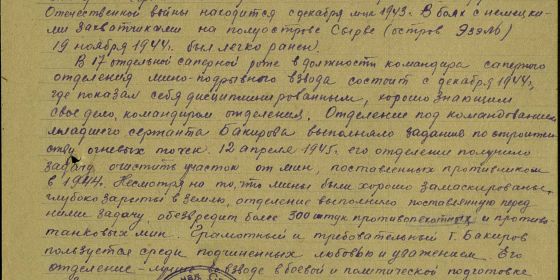 Отечественной войны находится с декабря м-ца 1943. В боях с немецки-
ми захватчиками на полуострове Сырве (остров Эзель)
19 ноября 1944г. был легко ранен.
В 17 отдельной саперной роте в должности командира саперного
отделения мино-подрывного взвода состоит с декабря 1944г.,
где показал себя дисциплинированным, хорошо знающим
свое дело, командиром отделения. Отделение под командованием
младшего сержанта Бакирова выполняло задание по строитель
ству огневых точек. 12 апреля 1945г. его отделение получило
задачу очистить участок от мин, поставленных противником
в 1944г. Несмотря на то, что мины были хорошо замаскированы,
глубоко зарыты в землю, отделение выполнило поставленную перед
ними задачу, обезвредит более 300 штук противопехотных и противо
танковых мин. Грамотный и требовательный т. Бакиров
пользуется среди подчиненных любовью и уважением. Его
отделение – лучшее во взводе в боевой и политической подготовке